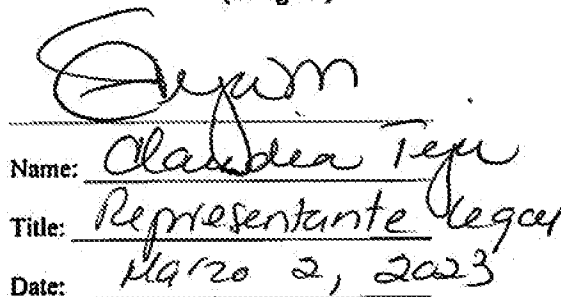 Name: Claudia Teju
Title: Representante legal
Date: Marzo 2, 2023